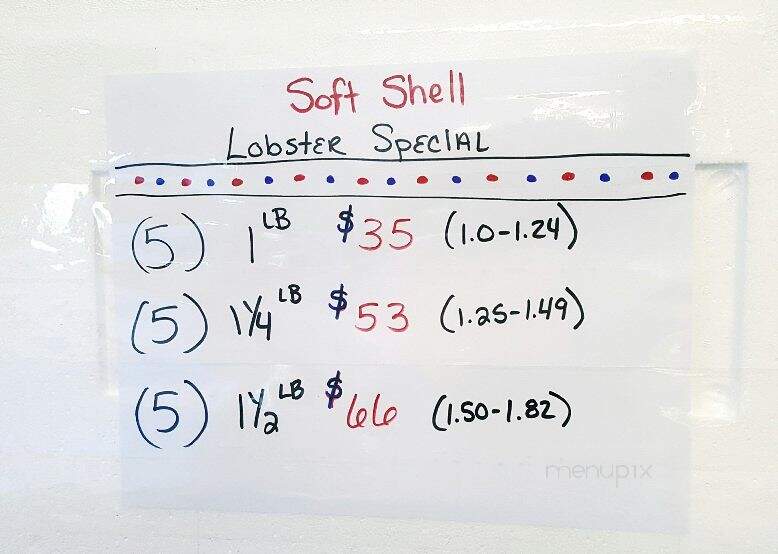 Soft Shell
Lobster Special
(5) 1 LB $35 (1.0-1.24)
(5) 1 1/4 LB $53 (1.25-1.49)
(5) 1 1/2 LB $66 (1.50-1.82)
menupix